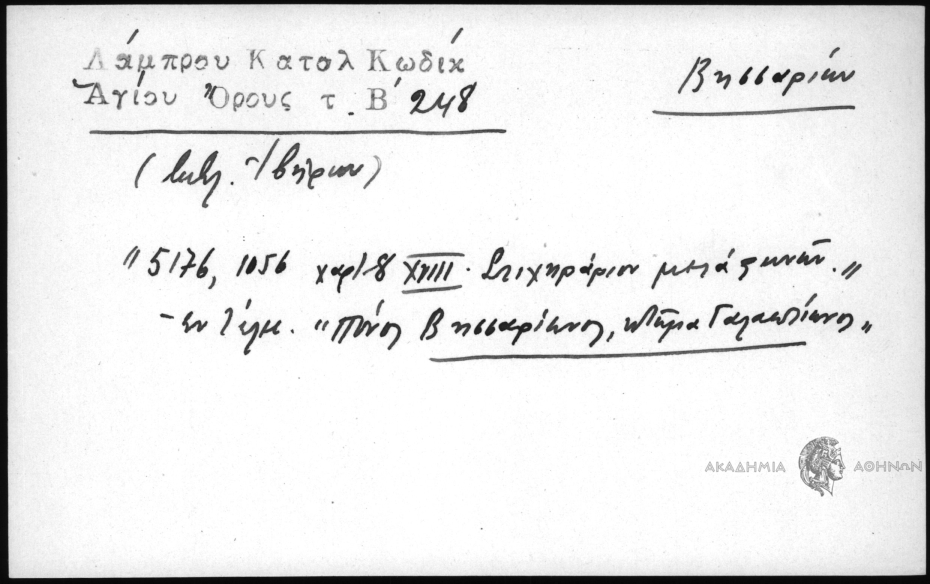 Λάμπρου Καταλ Κωδίκ
Ἁγίου Ὄρους τ. Β΄ 248
Βησσαρίων
(βιβλ. Ἰβήρων)
"5176, 1056 χαρτ 8 XVIII. Στιχηράριον μετὰ φωνῶν."
- ἐν τέλει. "Πόνος Βησσαρίωνος, κτῆμα Γαλακτίωνος"
ΑΚΑΔΗΜΙΑ ΑΘΗΝΩΝ